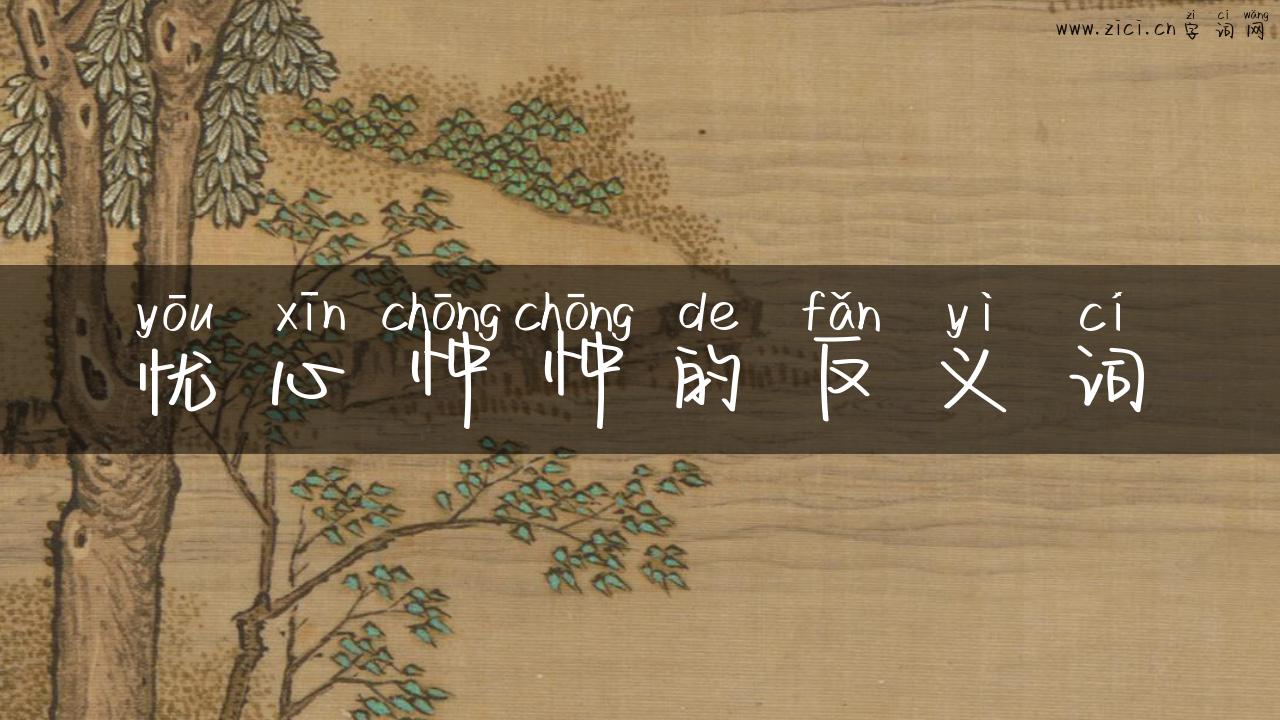 zì cí wǎng
www.zici.cn 字词网
yōu xīn chōng chōng de fǎn yì cí
忧心忡忡的反义词